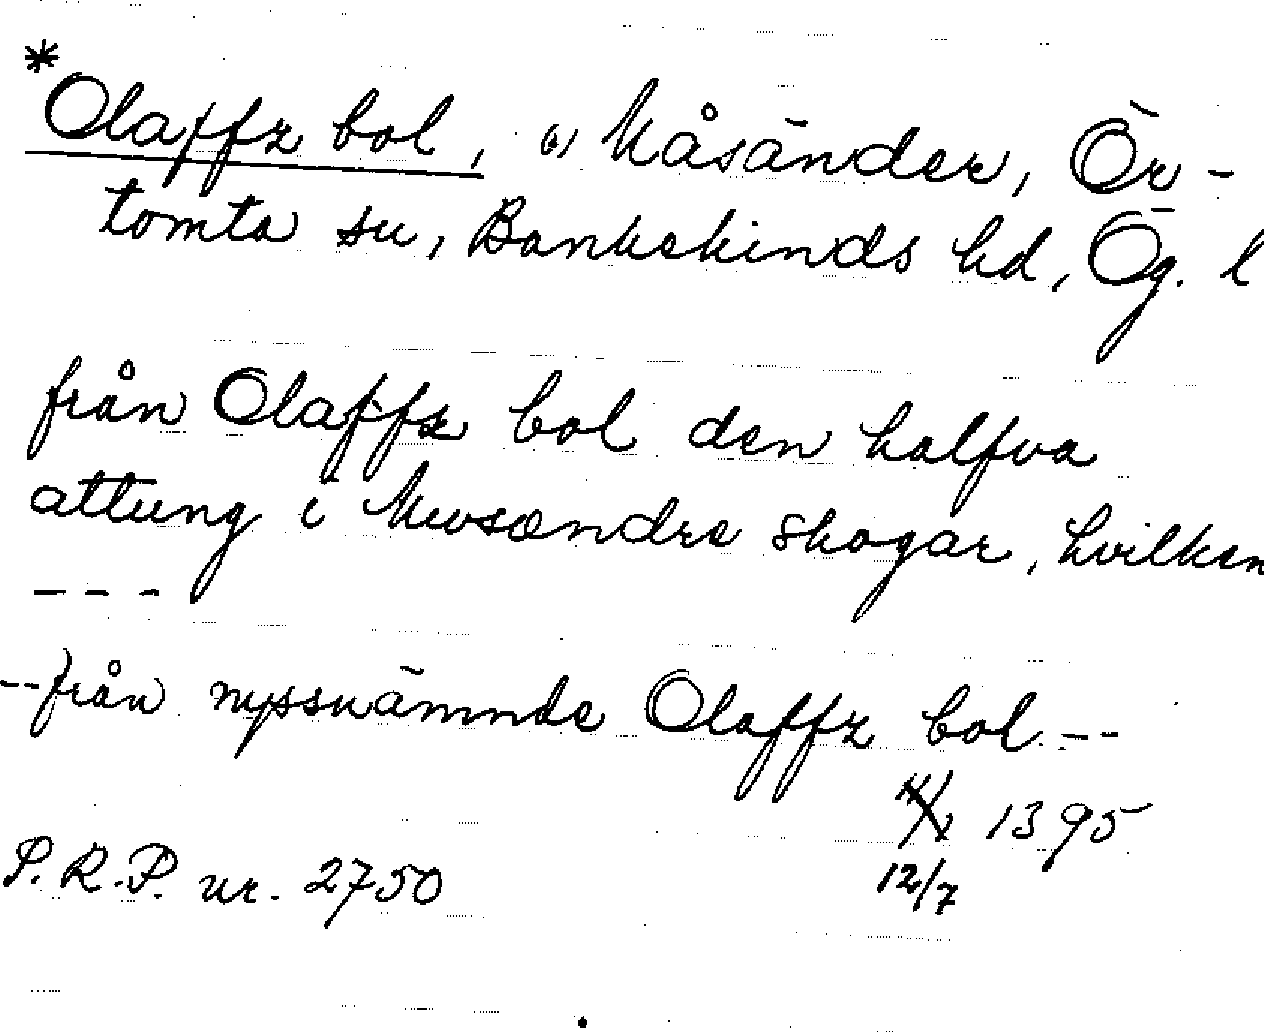 *Olaffz bol, (i) Måsänder, Ör-
tomta sn, Bankekinds hd, Ög. l
från Olaffz bol den halfva
attung i Mwsændre skogar, hvilken
---
--från nyssnämnde Olaffz bol.--
1395
S.R.P. nr. 2750
12/7